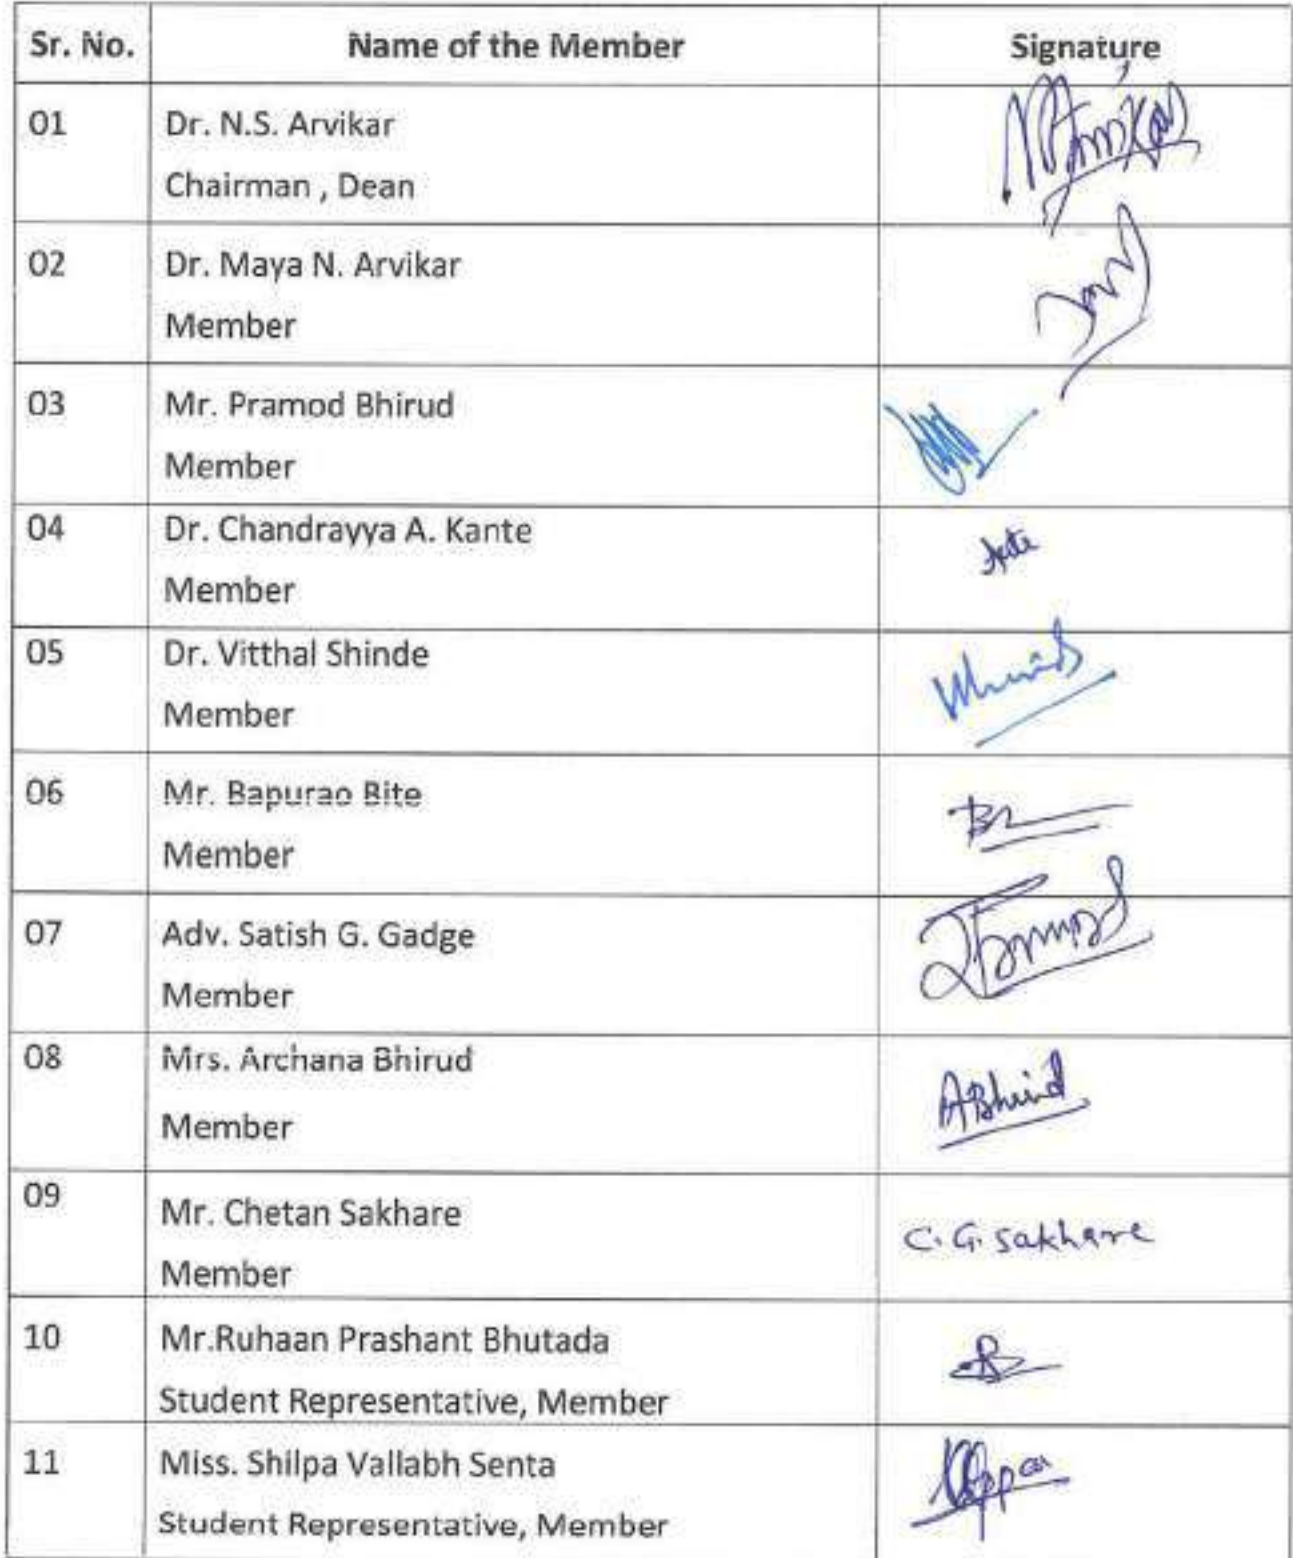 Sr. No. Name of the Member Signature
01 Dr. N.S. Arvikar
Chairman , Dean
02 Dr. Maya N. Arvikar
Member
03 Mr. Pramod Bhirud
Member
04 Dr. Chandrayya A. Kante
Member
05 Dr. Vitthal Shinde
Member
06 Mr. Bapurao Bite
Member
07 Adv. Satish G. Gadge
Member
08 Mrs. Archana Bhirud
ABhirud
Member
09 Mr. Chetan Sakhare
C. G. Sakhare
Member
10 Mr.Ruhaan Prashant Bhutada
Student Representative, Member
11 Miss. Shilpa Vallabh Senta
Student Representative, Member